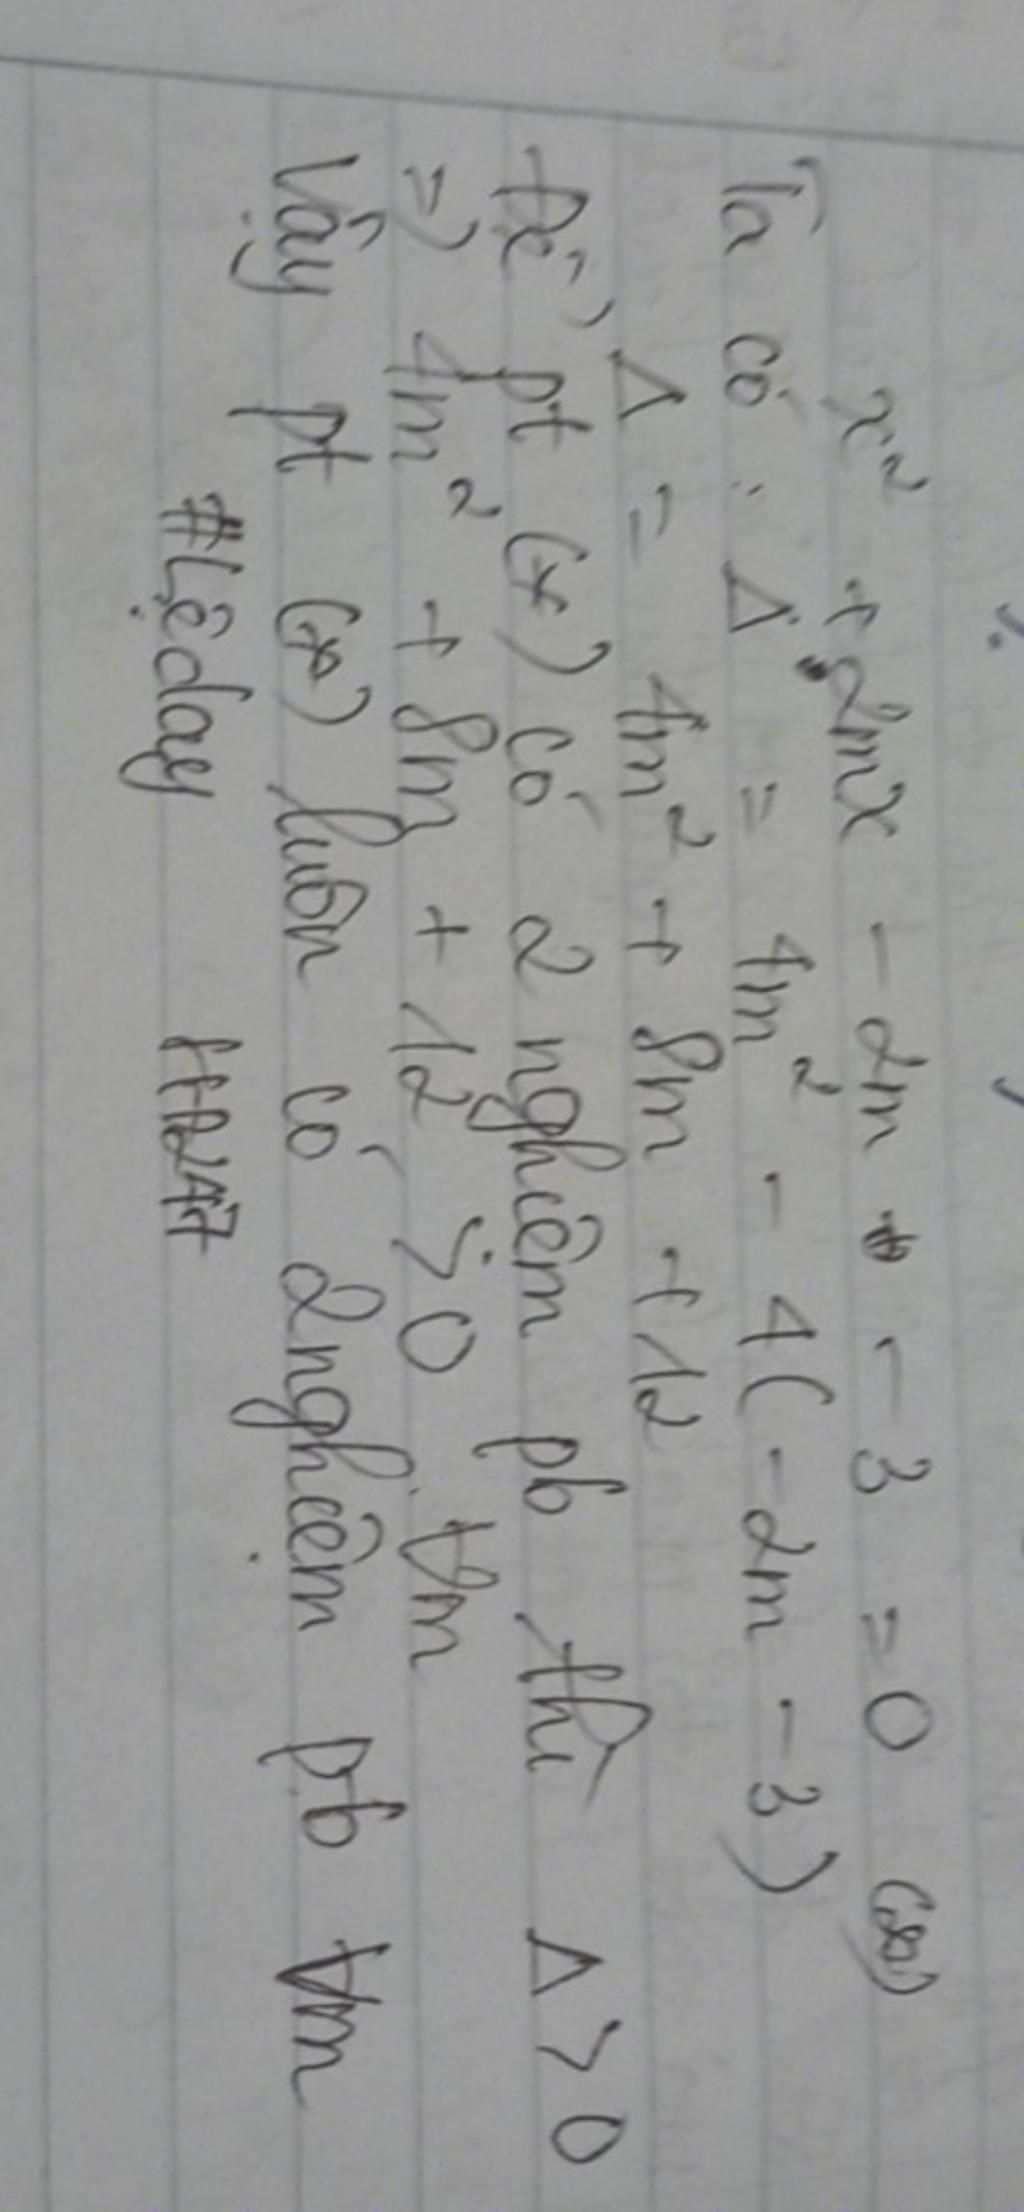 x² + 2mx - 2m - 3 = 0 (*)
Ta có : Δ = 4m² - 4(-2m - 3)
Δ = 4m² + 8m + 12
Để pt (*) có 2 nghiệm pb thì Δ > 0
=) 4m² + 8m + 12 > 0 ∀m
Vậy pt (*) luôn có 2 nghiệm pb ∀m
#Lệday H247